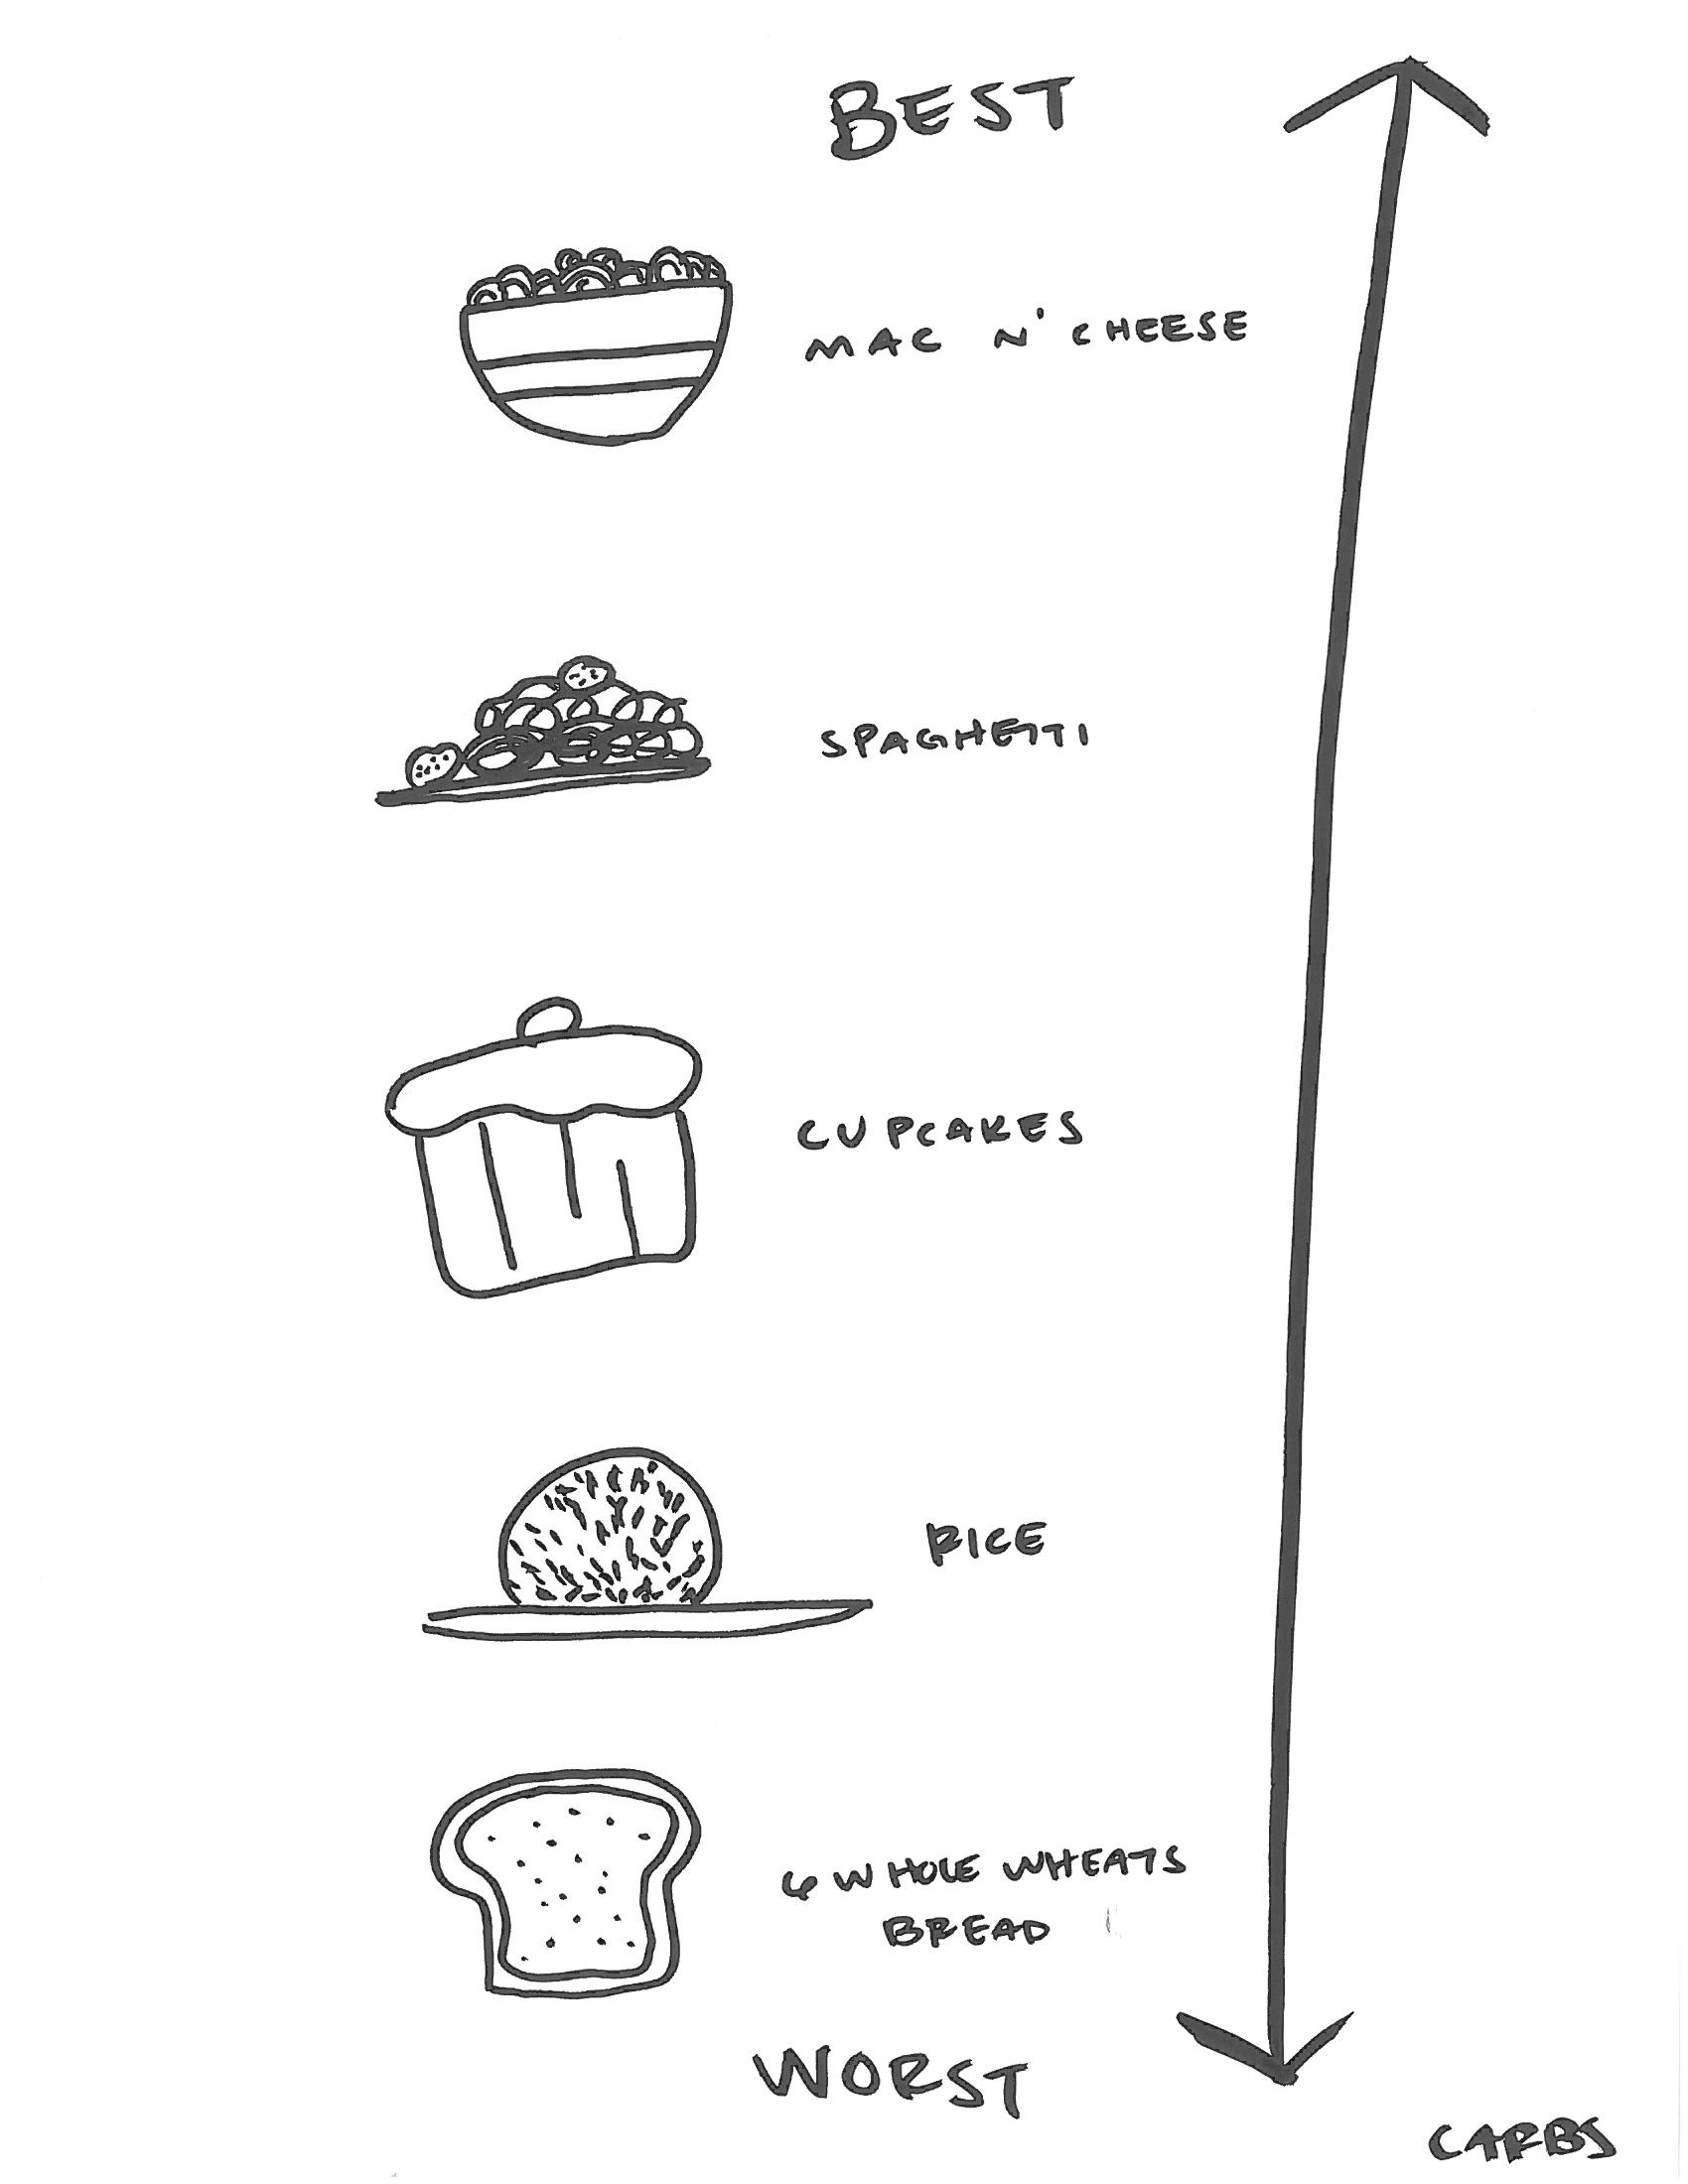 BEST
MAC N' CHEESE
SPAGHETTI
CUPCAKES
RICE
WHOLE WHEATS
BREAD
WORST
CARBS